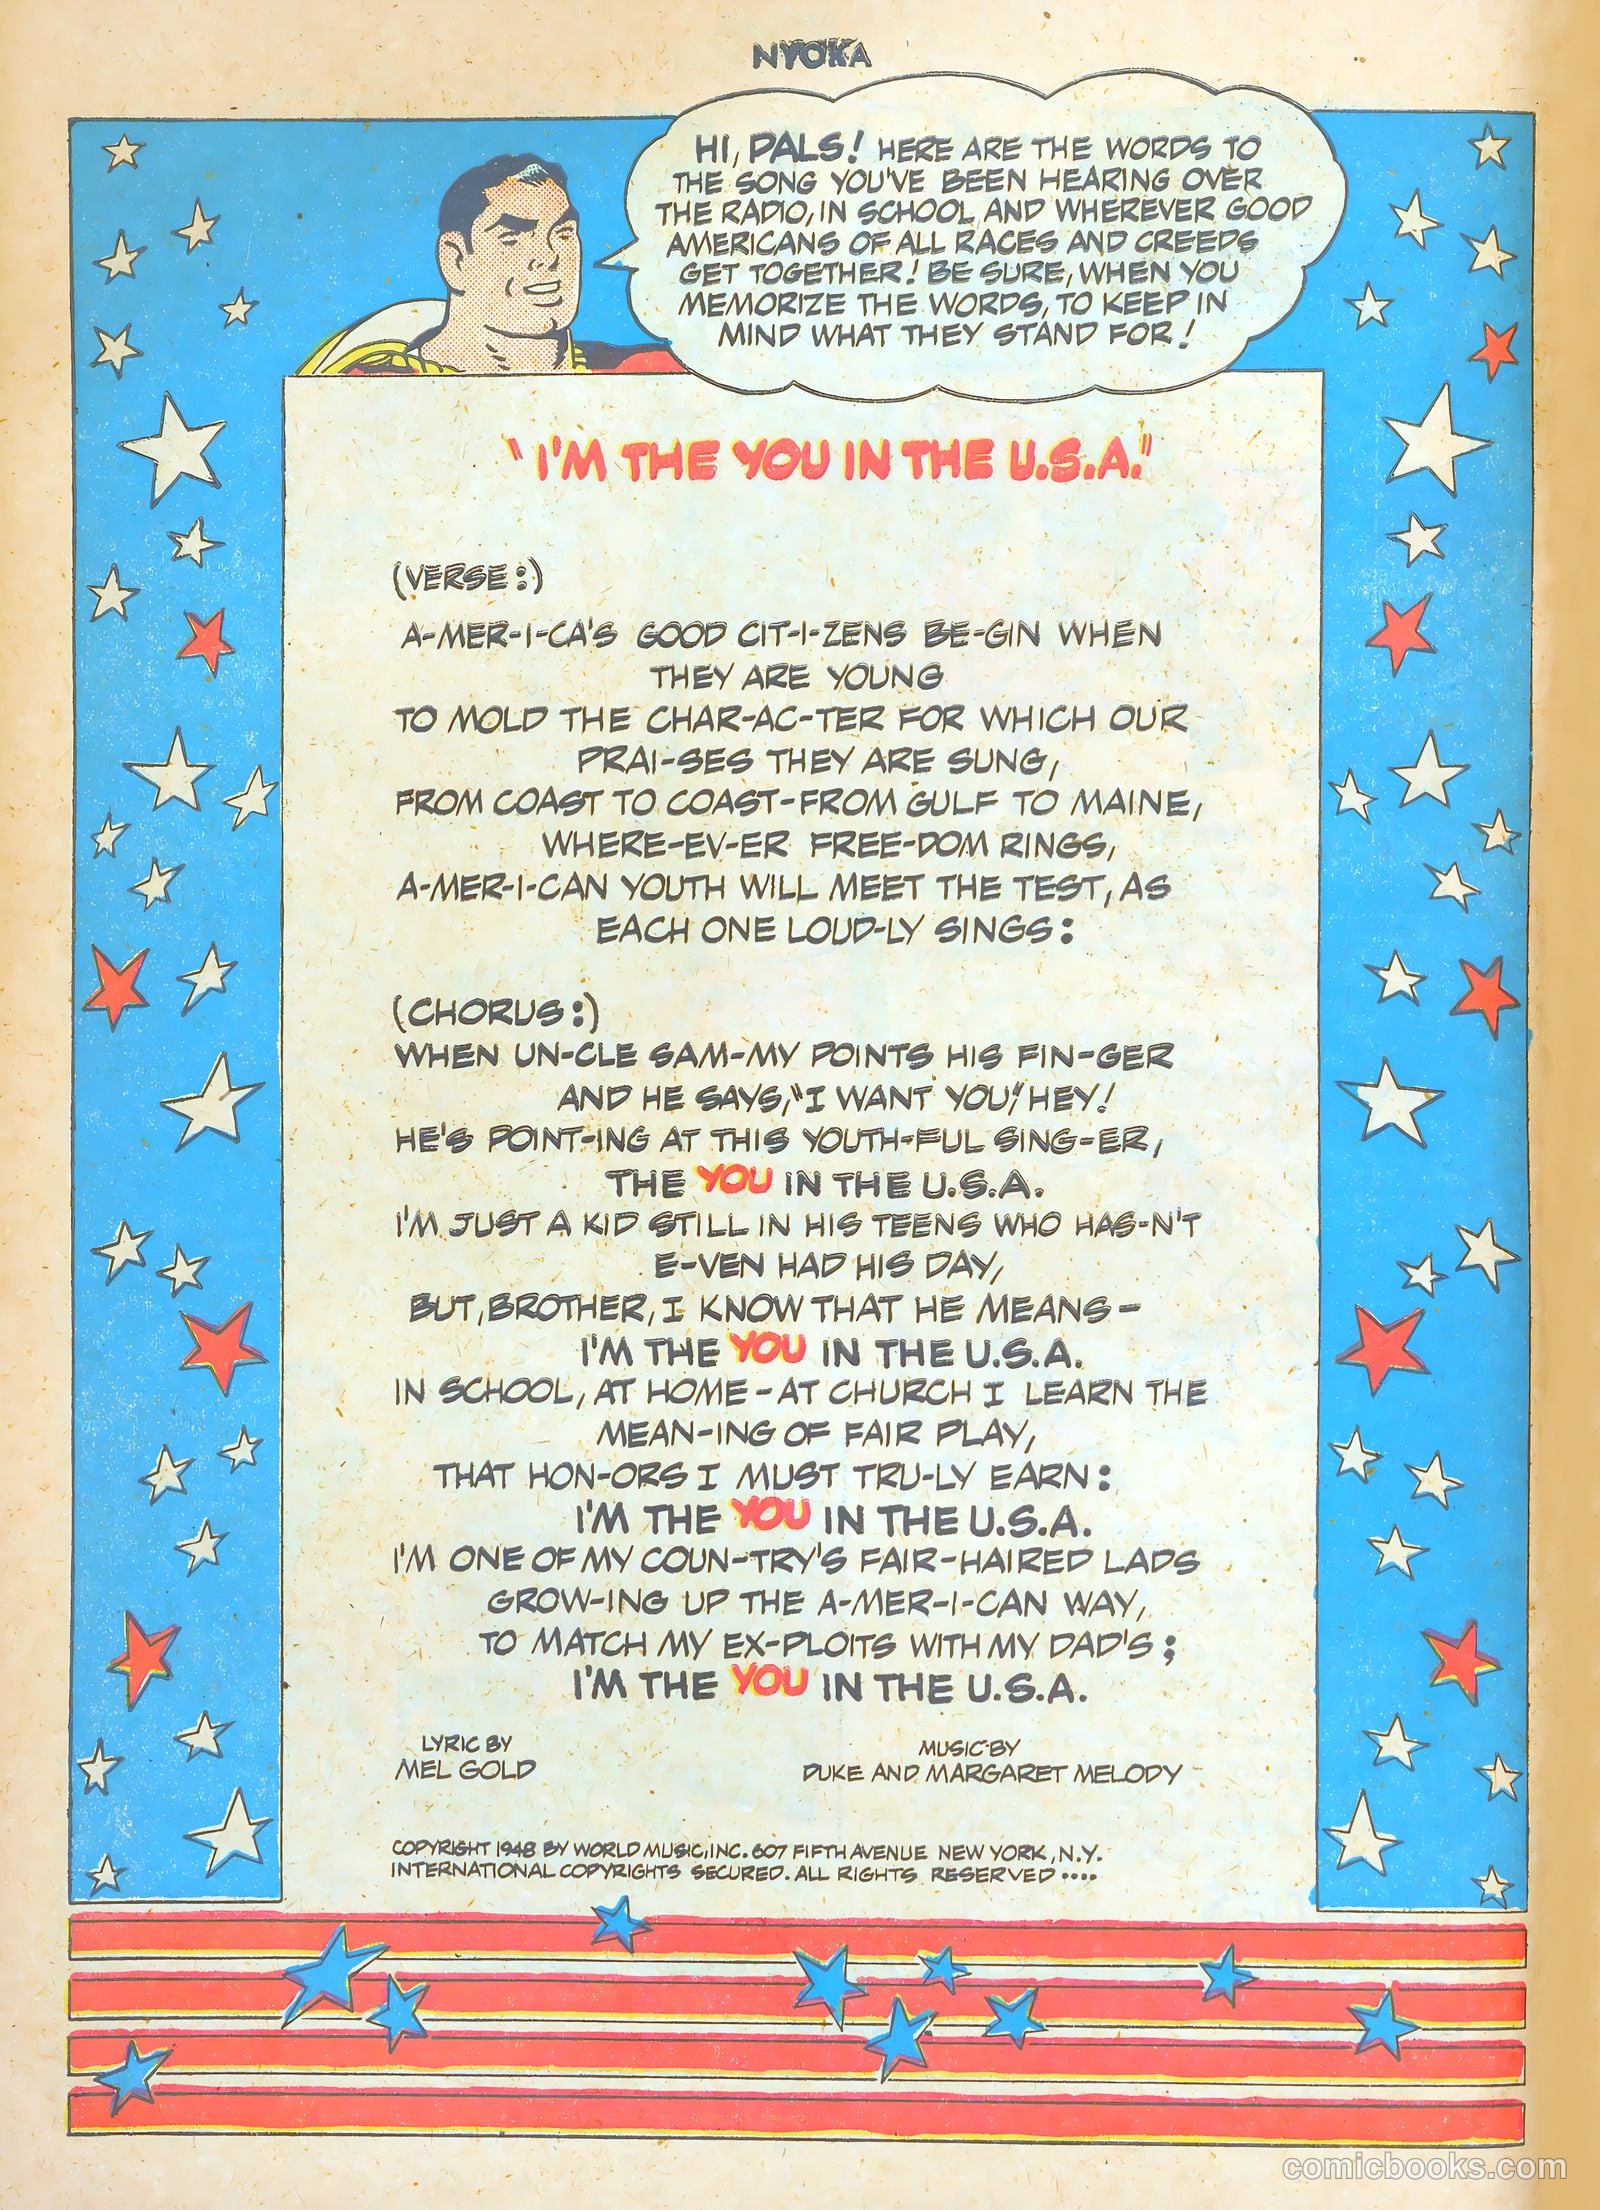 NYOKA
HI, PALS! HERE ARE THE WORDS TO
THE SONG YOU'VE BEEN HEARING OVER
THE RADIO, IN SCHOOL AND WHEREVER GOOD
AMERICANS OF ALL RACES AND CREEDS
GET TOGETHER! BE SURE, WHEN YOU
MEMORIZE THE WORDS, TO KEEP IN
MIND WHAT THEY STAND FOR!
"I'M THE YOU IN THE U.S.A."
(VERSE:)
A-MER-I-CA'S GOOD CIT-I-ZENS BE-GIN WHEN
THEY ARE YOUNG
TO MOLD THE CHAR-AC-TER FOR WHICH OUR
PRAI-SES THEY ARE SUNG,
FROM COAST TO COAST-FROM GULF TO MAINE,
WHERE-EV-ER FREE-DOM RINGS,
A-MER-I-CAN YOUTH WILL MEET THE TEST, AS
EACH ONE LOUD-LY SINGS:
(CHORUS:)
WHEN UN-CLE SAM-MY POINTS HIS FIN-GER
AND HE SAYS, "I WANT YOU," HEY!
HE'S POINT-ING AT THIS YOUTH-FUL SING-ER,
THE YOU IN THE U.S.A.
I'M JUST A KID STILL IN HIS TEENS WHO HAS-N'T
E-VEN HAD HIS DAY,
BUT, BROTHER, I KNOW THAT HE MEANS-
I'M THE YOU IN THE U.S.A.
IN SCHOOL, AT HOME-AT CHURCH I LEARN THE
MEAN-ING OF FAIR PLAY,
THAT HON-ORS I MUST TRU-LY EARN:
I'M THE YOU IN THE U.S.A.
I'M ONE OF MY COUN-TRY'S FAIR-HAIRED LADS
GROW-ING UP THE A-MER-I-CAN WAY,
TO MATCH MY EX-PLOITS WITH MY DAD'S;
I'M THE YOU IN THE U.S.A.
LYRIC BY
MEL GOLD
MUSIC BY
DUKE AND MARGARET MELODY
COPYRIGHT 1948 BY WORLD MUSIC, INC. 607 FIFTH AVENUE NEW YORK, N.Y.
INTERNATIONAL COPYRIGHTS SECURED. ALL RIGHTS RESERVED....
comicbooks.com